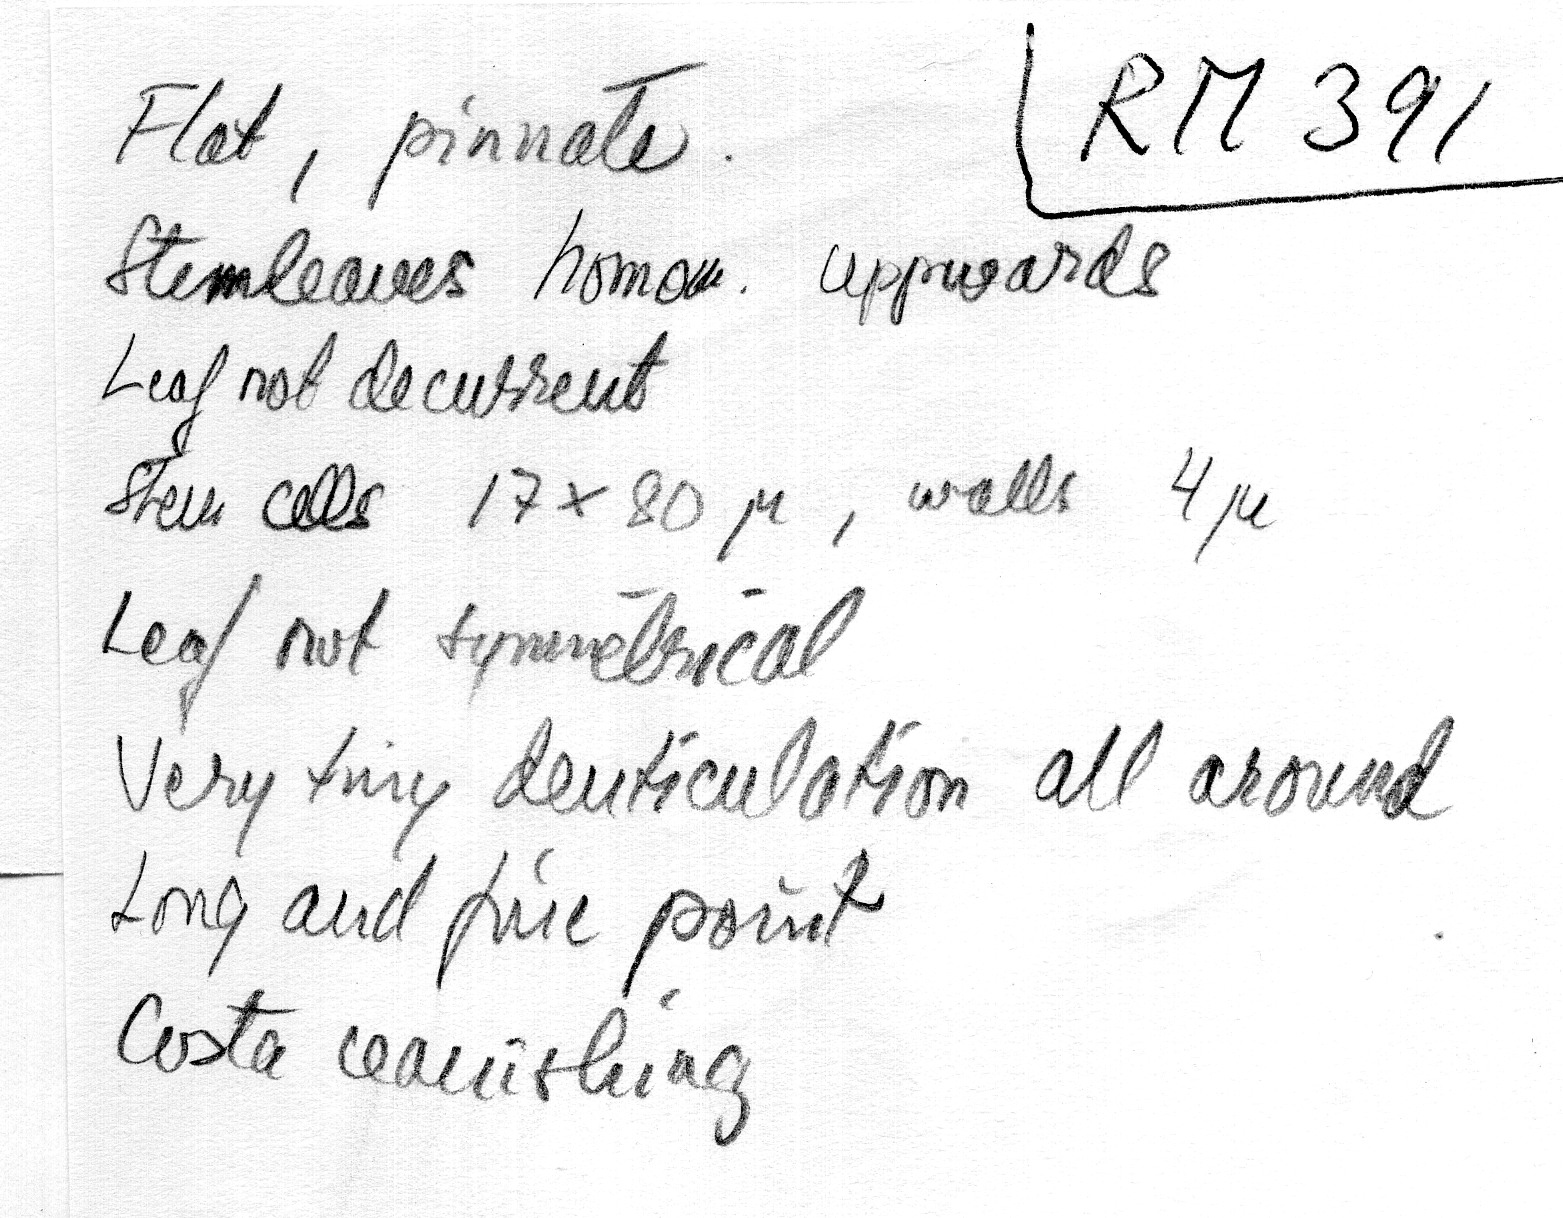 RM 391
Flat, pinnate.
Stemleaves homom. uppwards
Leaf not decurrent
Stem cells 17 x 80 µ, walls 4 µ
Leaf not symmetrical
Very tiny denticulation all around
Long and fine point
Costa vanishing